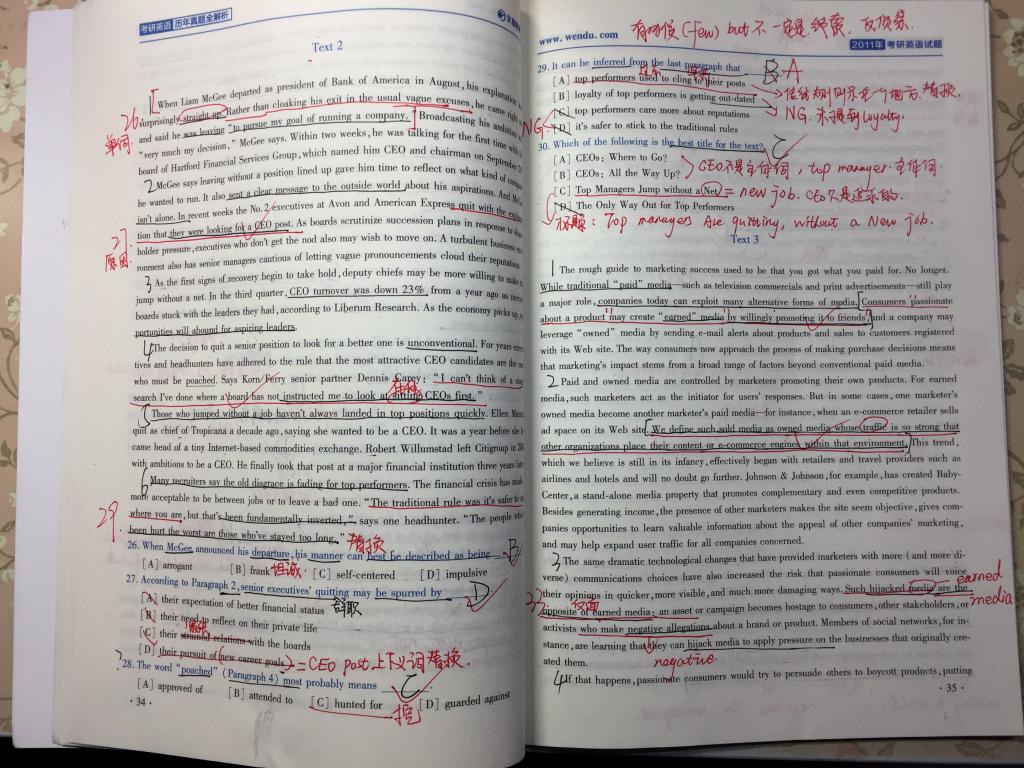 考研英语 历年真题全解析
Text 2
When Liam McGee departed as president of Bank of America in August, his explanation
surprisingly straight up. Rather than cloaking his exit in the usual vague excuses, he came right
and said he was leaving "to pursue my goal of running a company." Broadcasting his ambition
"very much my decision," McGee says. Within two weeks, he was talking for the first time with
board of Hartford Financial Services Group, which named him CEO and chairman on September
McGee says leaving without a position lined up gave him time to reflect on what kind of
he wanted to run. It also sent a clear message to the outside world about his aspirations. And McGee
isn't alone. In recent weeks the No. 2 executives at Avon and American Express quit with the
tion that they were looking for a CEO post. As boards scrutinize succession plans in response to
holder pressure, executives who don't get the nod also may wish to move on. A turbulent business
ronment also has senior managers cautious of letting vague pronouncements cloud their
As the first signs of recovery begin to take hold, deputy chiefs may be more willing to
jump without a net. In the third quarter, CEO turnover was down 23% from a year ago as
boards stuck with the leaders they had, according to Liberum Research. As the economy picks up,
portunities will abound for aspiring leaders.
The decision to quit a senior position to look for a better one is unconventional. For years
tives and headhunters have adhered to the rule that the most attractive CEO candidates are the
who must be poached. Says Korn/Ferry senior partner Dennis Carey: "I can't think of a
search I've done where a board has not instructed me to look at sitting CEOs first."
Those who jumped without a job haven't always landed in top positions quickly. Ellen
quit as chief of Tropicana a decade ago, saying she wanted to be a CEO. It was a year before she
came head of a tiny Internet-based commodities exchange. Robert Willumstad left Citigroup in
with ambitions to be a CEO. He finally took that post at a major financial institution three years
Many recruiters say the old disgrace is fading for top performers. The financial crisis has
more acceptable to be between jobs or to leave a bad one. "The traditional rule was it's safer to
where you are, but that's been fundamentally inverted," says one headhunter. "The people who
been hurt the worst are those who've stayed too long."
26. When McGee announced his departure, his manner can best be described as being
[A] arrogant [B] frank 坦诚 [C] self-centered [D] impulsive
27. According to Paragraph 2, senior executives' quitting may be spurred by
[A] their expectation of better financial status
[B] their need to reflect on their private life
[C] their strained relations with the boards
[D] their pursuit of new career goals = CEO post 上下义词替换.
28. The word "poached" (Paragraph 4) most probably means
[A] approved of [B] attended to [C] hunted for [D] guarded against
· 34 ·
www. wendu. com
2011年 考研英语试题
29. It can be inferred from the last paragraph that B A
[A] top performers used to cling to their posts
[B] loyalty of top performers is getting out-dated
[C] top performers care more about reputations NG. 未提到loyalty.
[D] it's safer to stick to the traditional rules
30. Which of the following is the best title for the text? C
[A] CEOs: Where to Go? CEO不是主体词, top manager 主体词
[B] CEOs: All the Way Up?
[C] Top Managers Jump without a Net = new job. CEO只是追求的.
[D] The Only Way Out for Top Performers
标题: Top managers are quitting, without a new job.
Text 3
The rough guide to marketing success used to be that you got what you paid for. No longer.
While traditional "paid" media—such as television commercials and print advertisements—still play
a major role, companies today can exploit many alternative forms of media. Consumers passionate
about a product may create "earned" media by willingly promoting it to friends, and a company may
leverage "owned" media by sending e-mail alerts about products and sales to customers registered
with its Web site. The way consumers now approach the process of making purchase decisions means
that marketing's impact stems from a broad range of factors beyond conventional paid media.
Paid and owned media are controlled by marketers promoting their own products. For earned
media, such marketers act as the initiator for users' responses. But in some cases, one marketer's
owned media become another marketer's paid media—for instance, when an e-commerce retailer sells
ad space on its Web site. We define such sold media as owned media whose traffic is so strong that
other organizations place their content or e-commerce engines within that environment. This trend,
which we believe is still in its infancy, effectively began with retailers and travel providers such as
airlines and hotels and will no doubt go further. Johnson & Johnson, for example, has created Baby-
Center, a stand-alone media property that promotes complementary and even competitive products.
Besides generating income, the presence of other marketers makes the site seem objective, gives com-
panies opportunities to learn valuable information about the appeal of other companies' marketing,
and may help expand user traffic for all companies concerned.
The same dramatic technological changes that have provided marketers with more (and more di-
verse) communications choices have also increased the risk that passionate consumers will voice
their opinions in quicker, more visible, and much more damaging ways. Such hijacked media are the
opposite of earned media: an asset or campaign becomes hostage to consumers, other stakeholders, or
activists who make negative allegations about a brand or product. Members of social networks, for in-
stance, are learning that they can hijack media to apply pressure on the businesses that originally cre-
ated them.
If that happens, passionate consumers would try to persuade others to boycott products, putting
· 35 ·
earned
media
negative